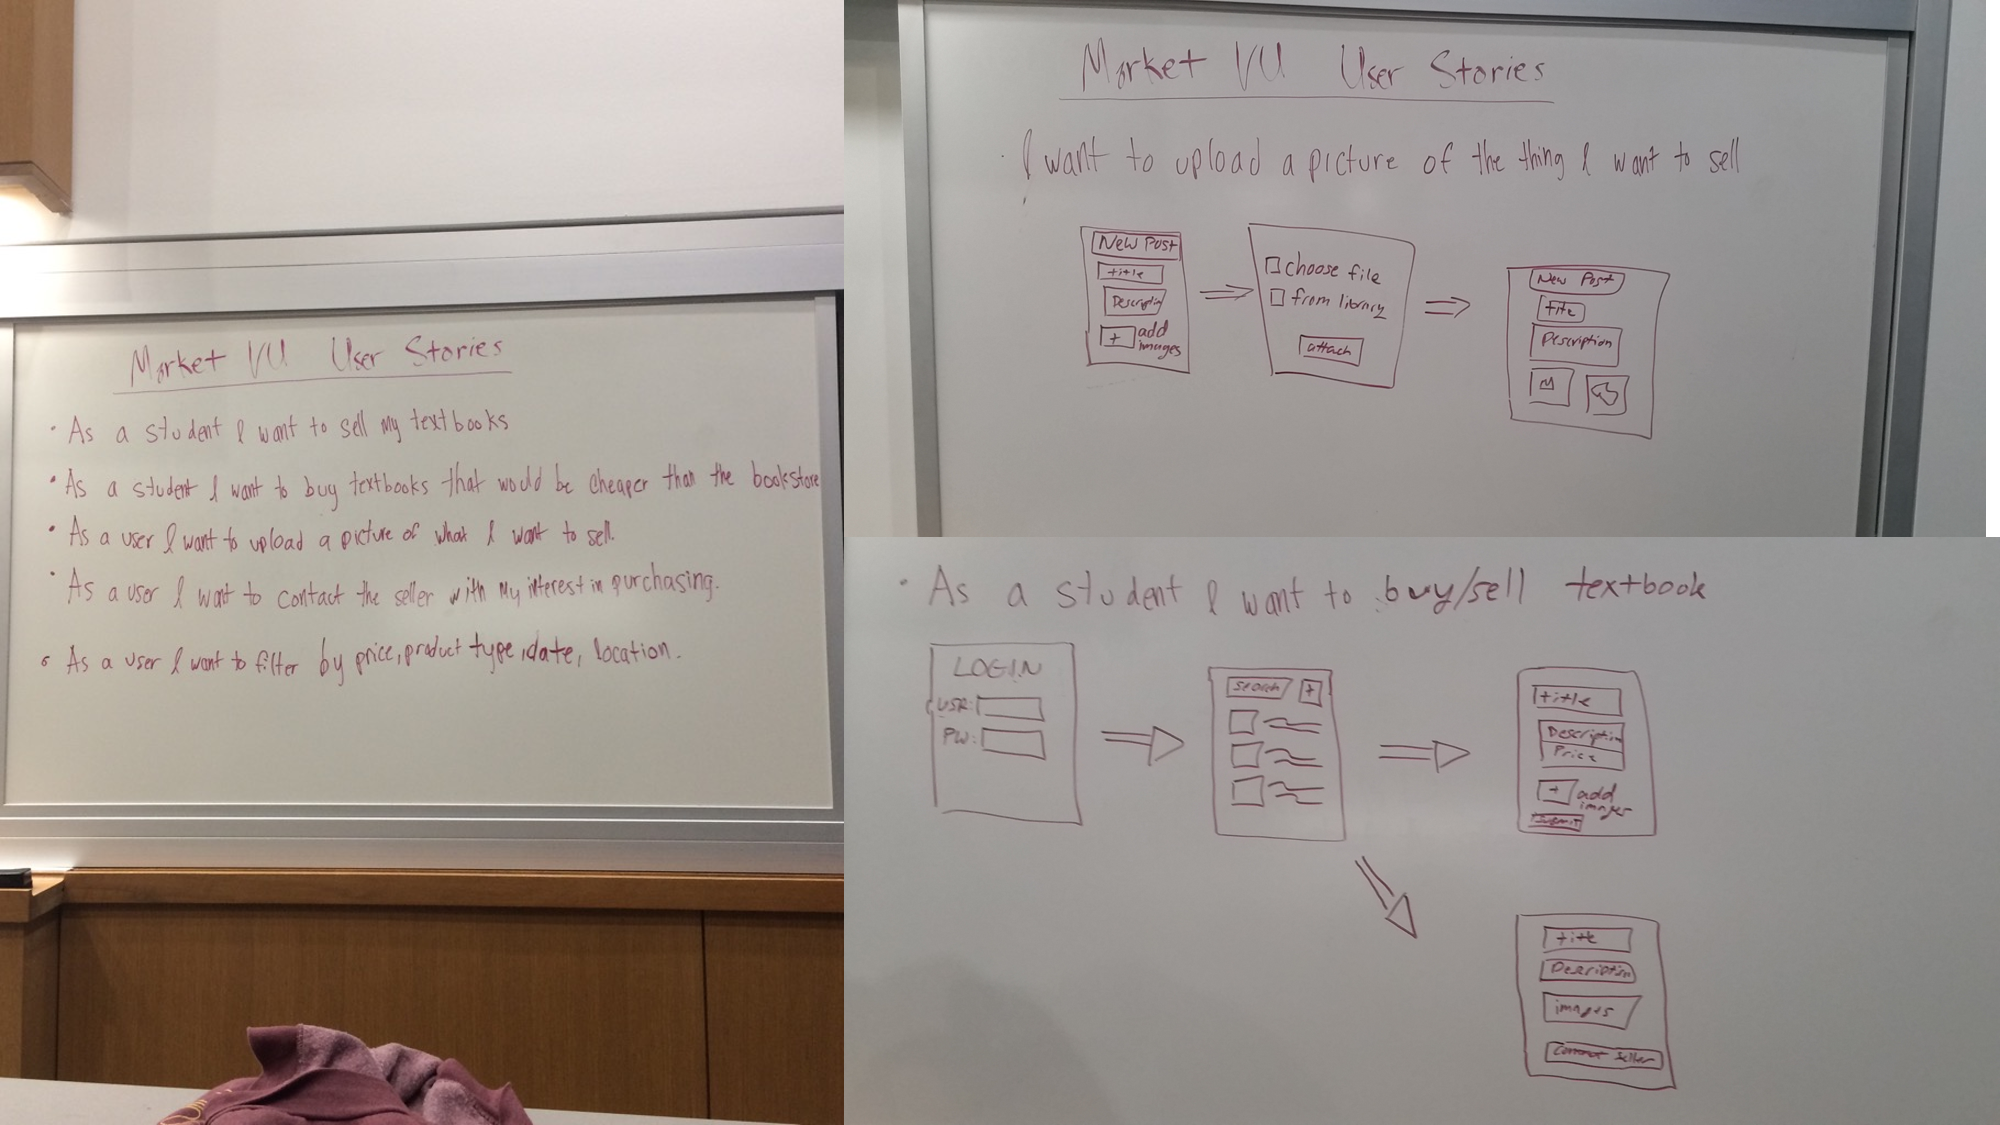 Market VU User Stories
· As a student I want to sell my textbooks
· As a student I want to buy textbooks that would be cheaper than the bookstore
· As a user I want to upload a picture of what I want to sell.
· As a user I want to contact the seller with my interest in purchasing.
· As a user I want to filter by price, product type, date, location.
Market VU User Stories
· I want to upload a picture of the thing I want to sell
New Post
title
Description
+ add
images
choose file
from library
attach
New Post
title
Description
· As a student I want to buy/sell textbook
LOGIN
USR:
PW:
search +
title
Description
Price
+ add
images
submit
title
Description
images
Contact Seller